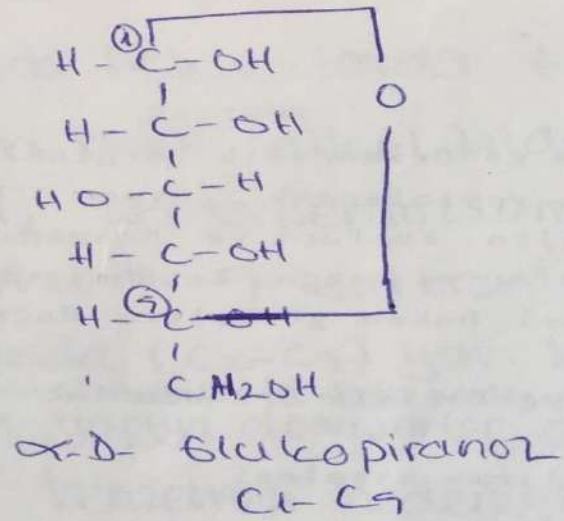 ①
H - C - OH
O
H - C - OH
HO - C - H
H - C - OH
H - C - OH
CH2OH
α-D- Glukopiranoz
C1-C5